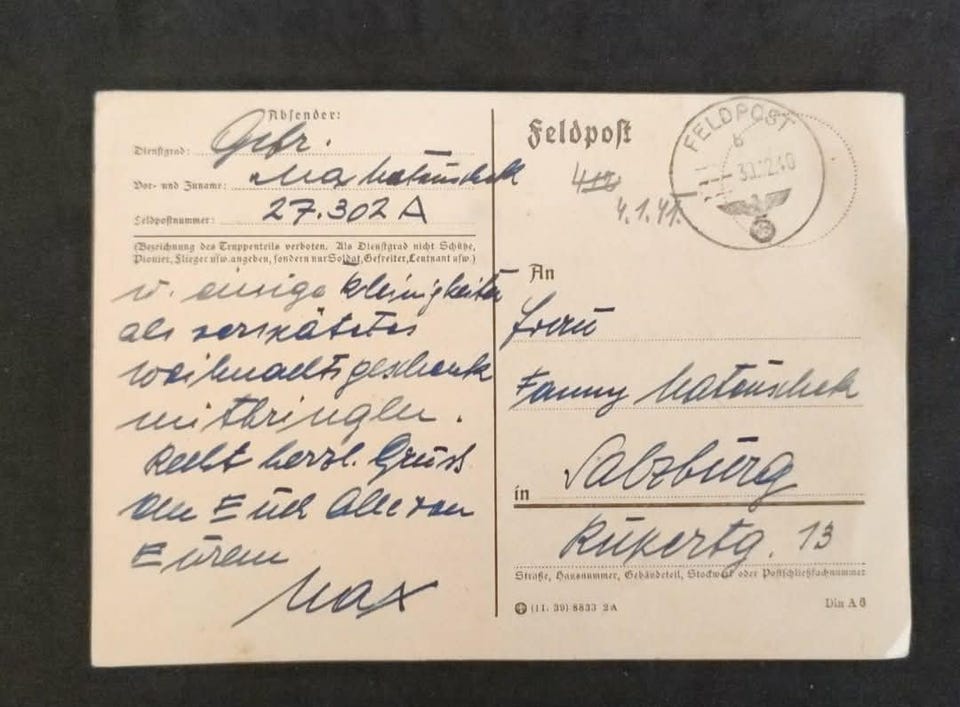 Absender:
Dienstgrad: Gefr.
Vor- und Zuname: Max Matauschek
Feldpostnummer: 27.302 A
(Bezeichnung des Truppenteils verboten. Als Dienstgrad nicht Schütze,
Pionier, Flieger usw. angeben, sondern nur Soldat, Gefreiter, Leutnant usw.)
u. einige Kleinigkeiten
als verspätetes
Weihnachtsgeschenk
mitbringen.
Recht herzl. Grüsse
an Euch Alle von
Eurem
Max
Feldpost
4.1.41.
FELDPOST
b
30.12.40
An
Frau
Fanny Matauschek
in Salzburg
Rupertg. 13
Straße, Hausnummer, Gebäudeteil, Stockwerk oder Postschließfachnummer
(11. 39) 8833 2A
Din A 6